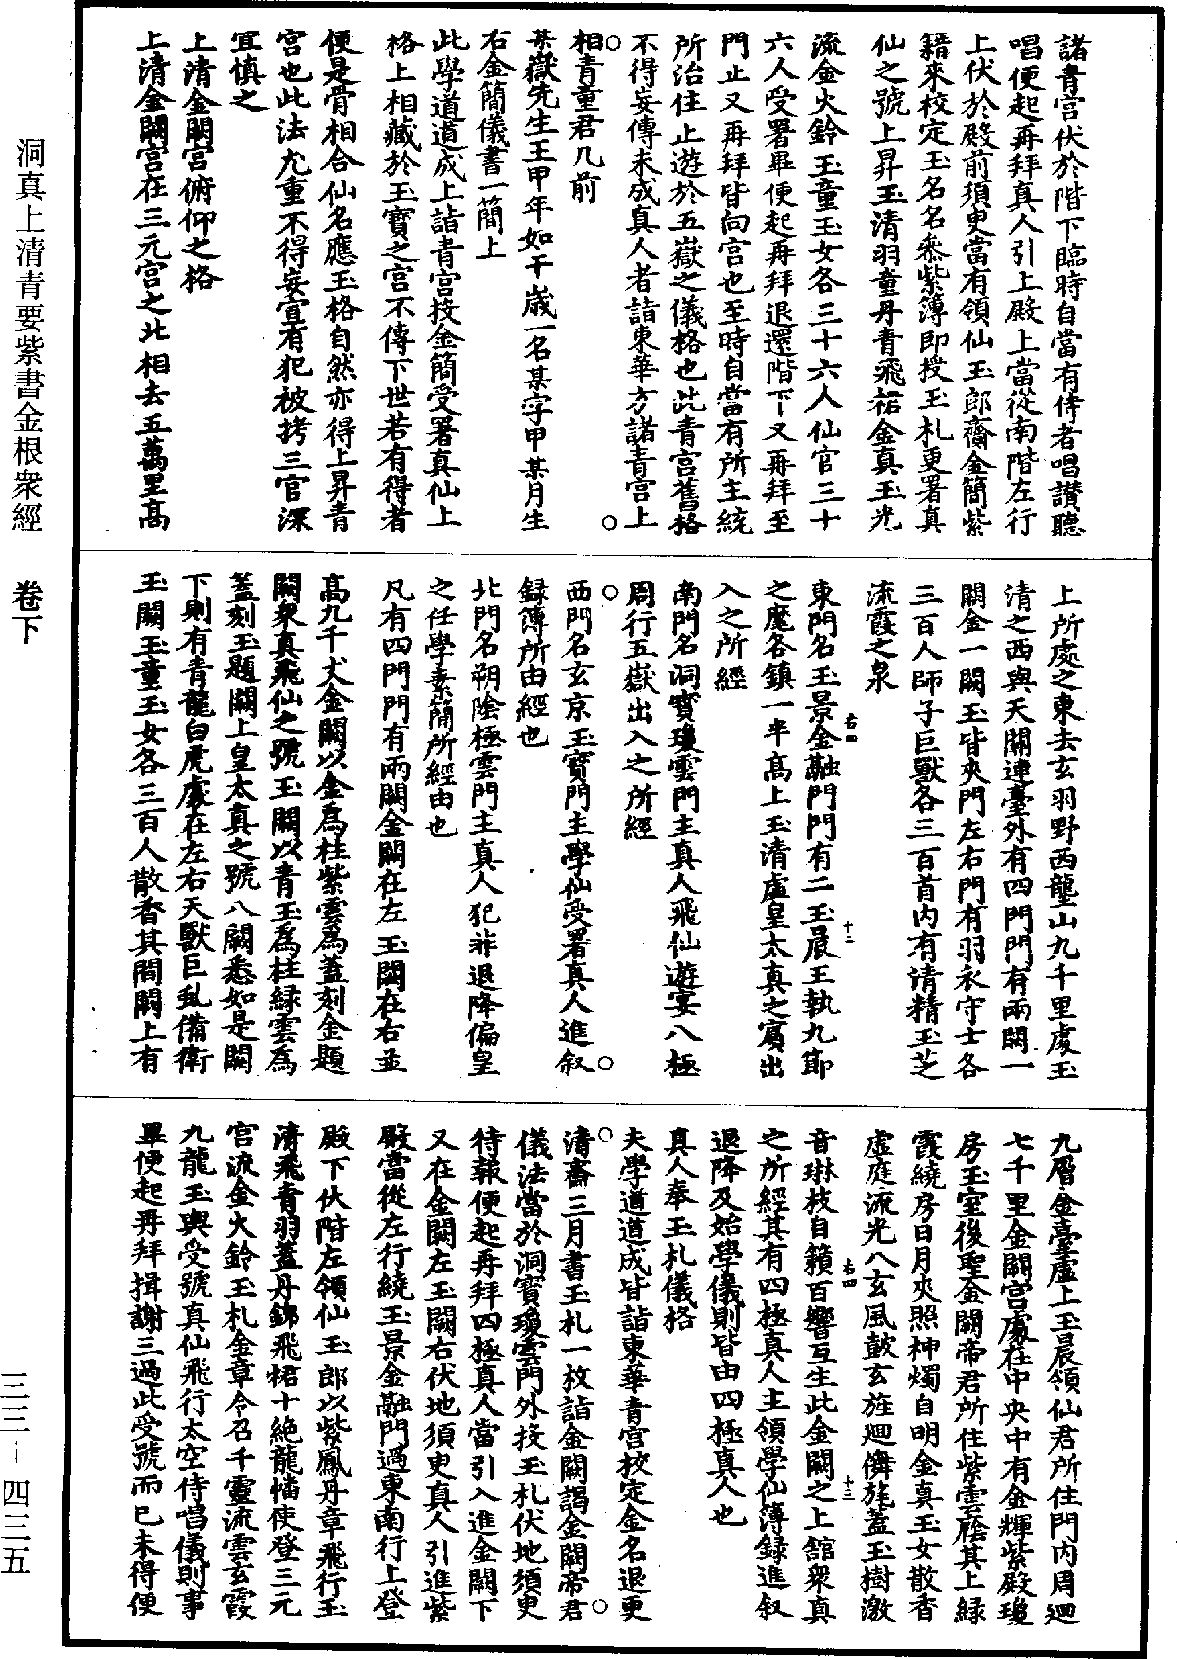 諸青宮伏於階下臨時自當有侍者唱讃聽
唱便起再拜真人引上殿上當從南階左行
上伏於殿前須臾當有領仙玉郎齎金簡紫
籍來校定玉名名叅紫簿即授玉札更署真
仙之號上昇玉清羽童丹青飛裙金真玉光
流金火鈴玉童玉女各三十六人仙官三十
六人受署畢便起再拜退還階下又再拜至
門止又再拜皆向宮也至時自當有所主統
所治住止遊於五嶽之儀格也此青宮舊格
不得妄傳未成真人者詣東華方諸青宮上
相青童君几前
某嶽先生王甲年如干歲一名某字甲某月生
右金簡儀書一簡上
此學道道成上詣青宮按金簡受署真仙上
格上相藏於玉寶之宮不傳下世若有得者
便是骨相合仙名應玉格自然亦得上昇青
宮也此法尤重不得妄宣有犯被拷三官深
宜慎之
上清金闕宮俯仰之格
上清金闕宮在三元宮之北相去五萬里高
上所處之東去玄羽野西壟山九千里處玉
清之西與天關連臺外有四門門有兩闕一
闕金一闕玉皆夾門左右門有羽衣守士各
三百人師子巨獸各三百首內有清精玉芝
流霞之泉
東門名玉景金融門門有二玉晨王執九節
之麾各鎮一半高上玉清虛皇太真之賓出
入之所經
南門名洞寶瓊雲門主真人飛仙遊宴八極
周行五嶽出入之所經
西門名玄京玉寶門主學仙受署真人進叙
録簿所由經也
北門名朔陰極雲門主真人犯非退降偏皇
之任學素簡所經由也
凡有四門門有兩闕金闕在左玉闕在右並
高九千丈金闕以金爲柱紫雲爲蓋刻金題
闕衆真飛仙之號玉闕以青玉爲柱緑雲爲
蓋刻玉題闕上皇太真之號八闕悉如是闕
下則有青龍白虎處在左右天獸巨虬備衛
玉闕玉童玉女各三百人散香其間闕上有
九層金臺虛上玉晨領仙君所住門內周迴
七千里金闕宮處在中央中有金輝紫殿瓊
房玉室後聖金闕帝君所住紫雲蔭其上緑
霞繞房日月夾照神燭自明金真玉女散香
虛庭流光八玄風鼓玄旌迴儛旄蓋玉樹激
音琳枝自籟百響互生此金闕之上舘衆真
之所經其有四極真人主領學仙簿録進叙
退降及始學儀則皆由四極真人也
真人奉玉札儀格
夫學道道成皆詣東華青宮校定金名退更
清齋三月書玉札一枚詣金闕謁金闕帝君
儀法當於洞寶瓊雲門外投玉札伏地須臾
待報便起再拜四極真人當引入進金闕下
又在金闕左玉闕右伏地須臾真人引進紫
殿當從左行繞玉景金融門過東南行上登
殿下伏階左領仙玉郎以紫鳳丹章飛行玉
清飛青羽蓋丹錦飛裙十絶龍幡使登三元
宮流金火鈴玉札金章令召千靈流雲玄霞
九龍玉輿受號真仙飛行太空侍唱儀則事
畢便起再拜揖謝三過此受號而已未得便
右四
十二
右四
十三
洞真上清青要紫書金根衆經　卷下
三三－四三五